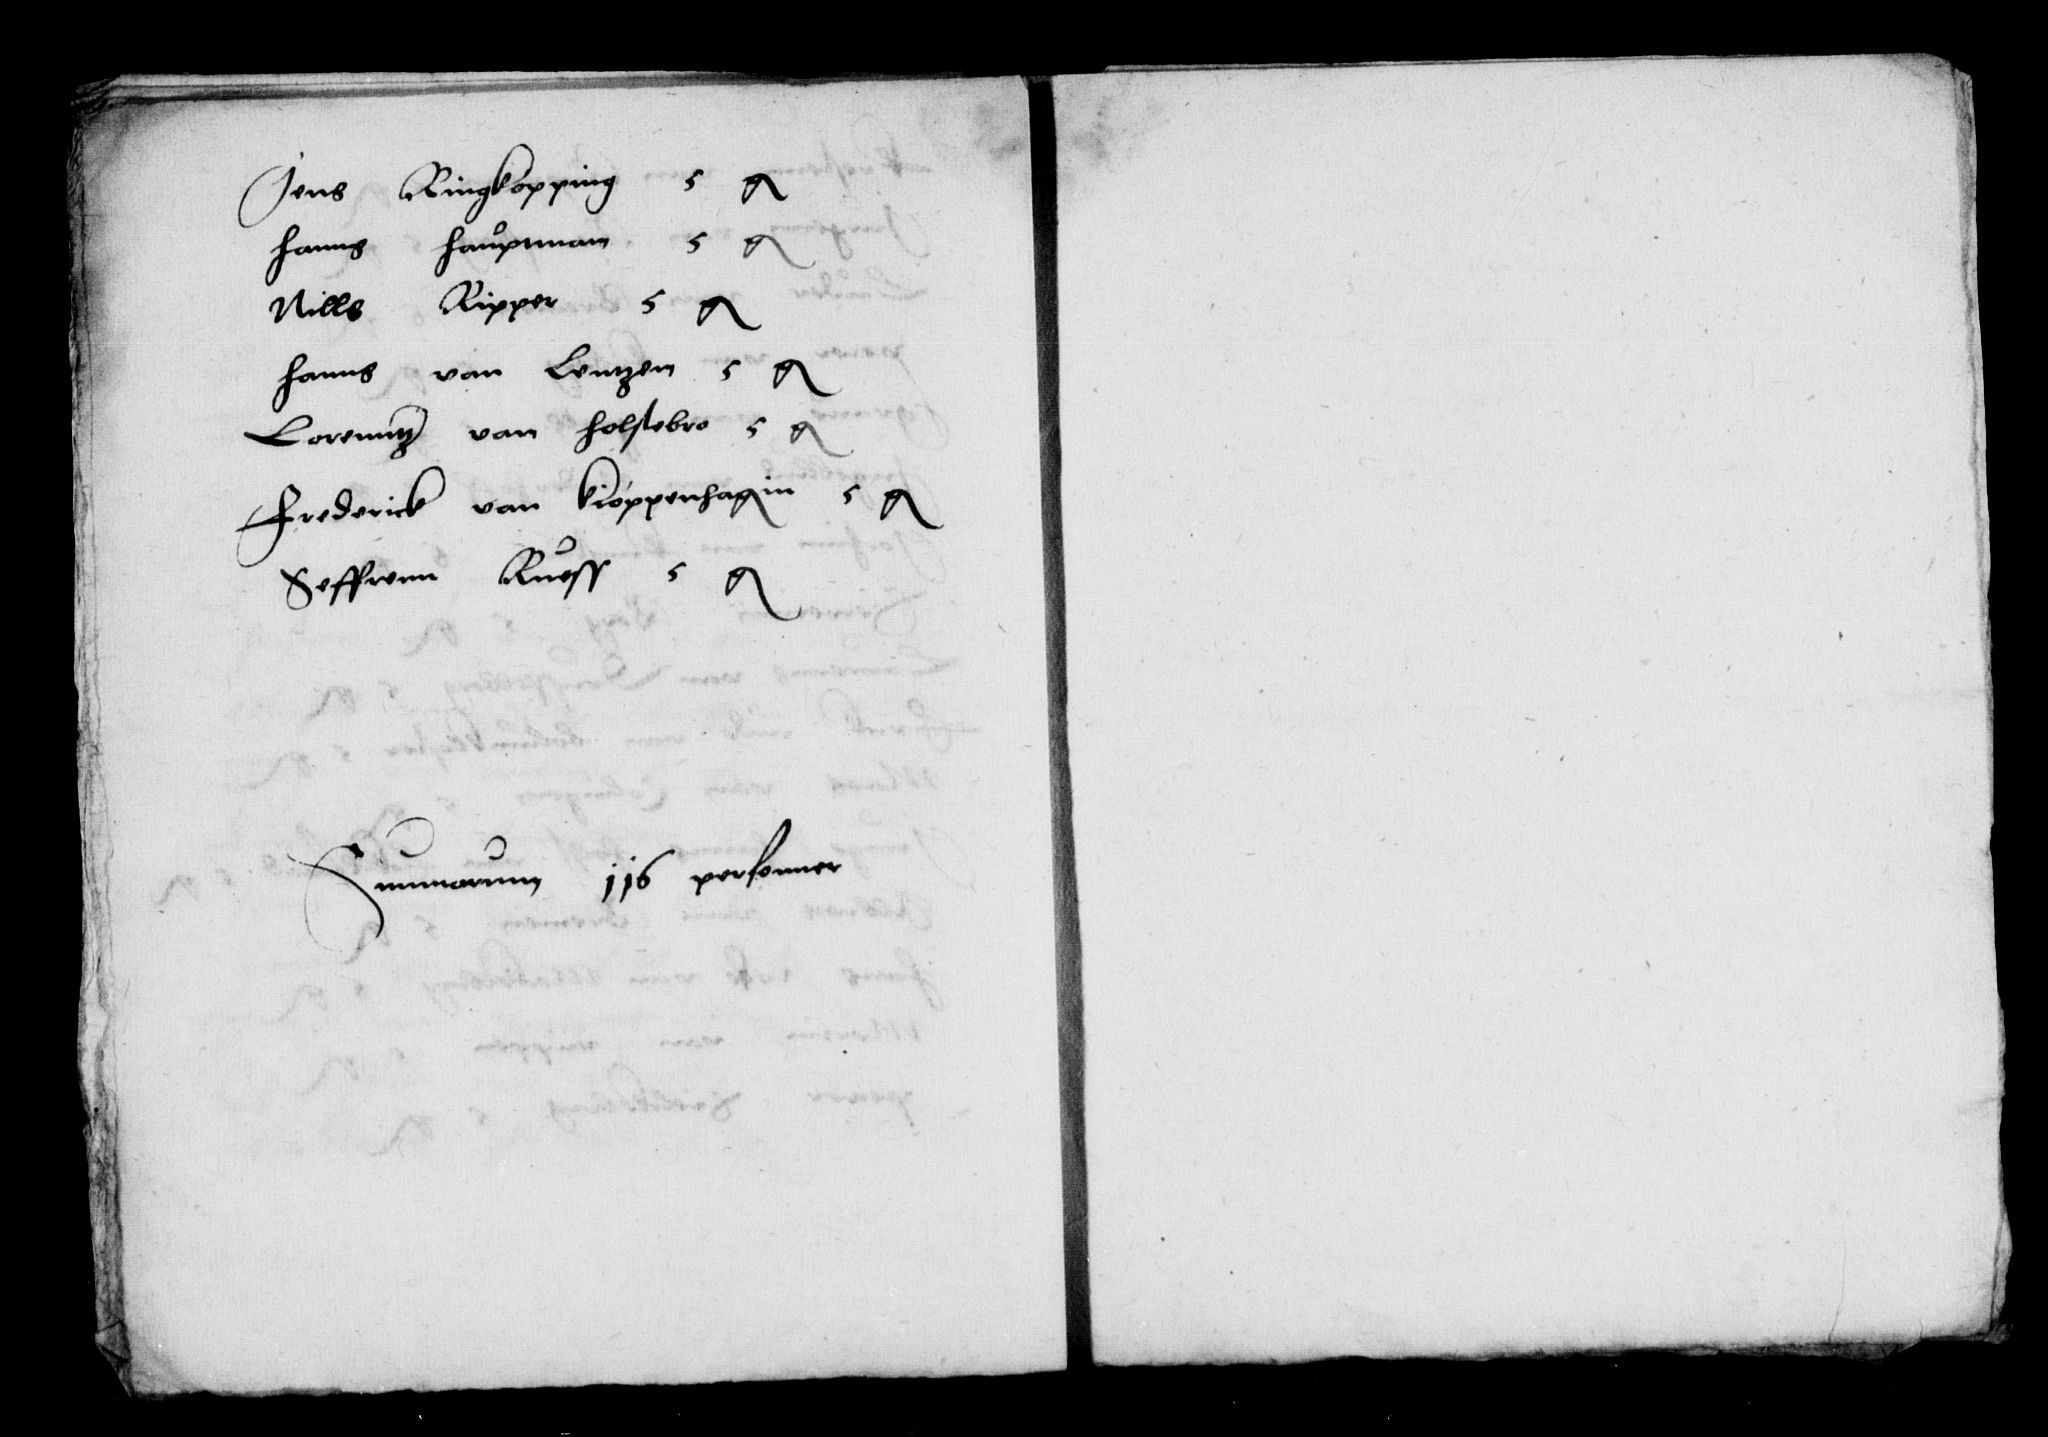 Jens Ringkopping 5 g
Hanns Hauptman 5 g
Nills Ripper 5 g
Hanns van Lentzen 5 g
Lorenntz van Holstebro 5 g
Frederick van Kioppenhagin 5 g
Seffrenn Ruess 5 g
Summarum 116 personner